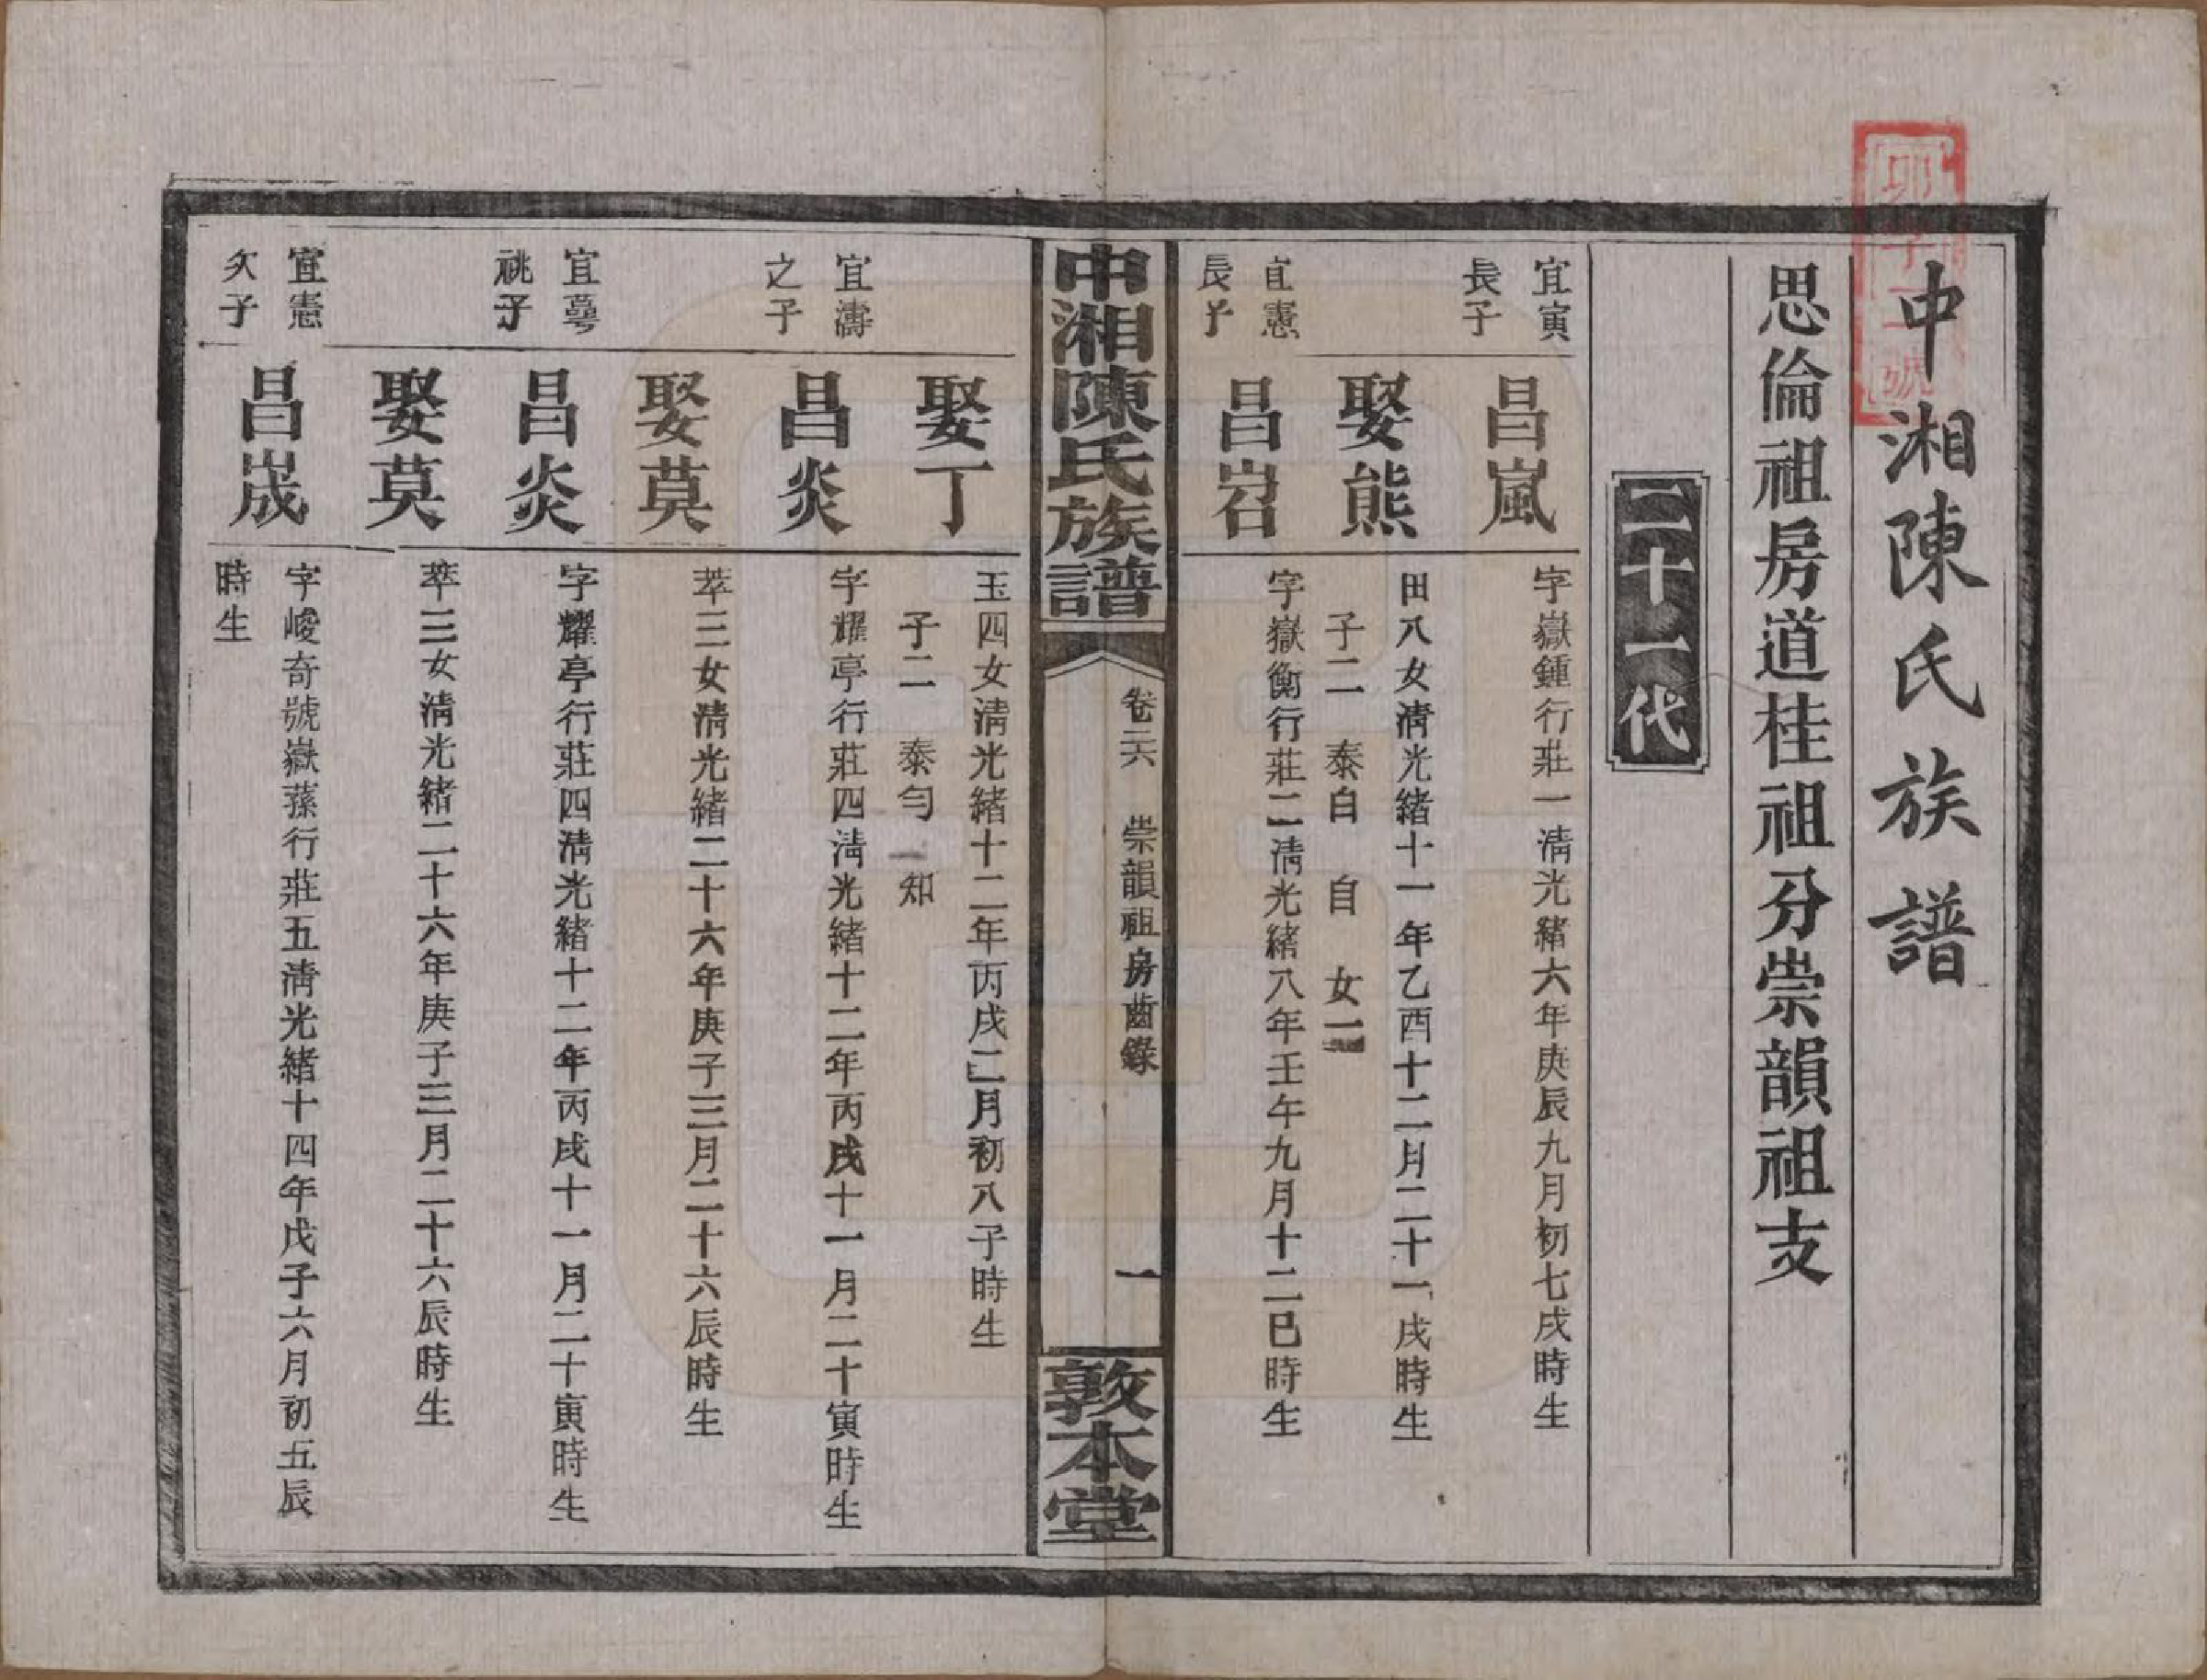 中湘陳氏族譜
思倫祖房道桂祖分崇韻祖支
二十一代
宜寅
長子
昌嵐
字嶽鍾行莊一清光緒六年庚辰九月初七戌時生
娶熊
田八女清光緒十一年乙酉十二月二十一戌時生
子二 泰自 自 女二
宜憲
長子
昌岧
字嶽衡行莊二清光緒八年壬午九月十二巳時生
中湘陳氏族譜
卷二六 崇韻祖房齒錄
一
敦本堂
娶丁
玉四女清光緒十二年丙戌二月初八子時生
子二 泰勻 知
宜濤
之子
昌炎
字耀亭行莊四清光緒十二年丙戌十一月二十寅時生
娶莫
萃三女清光緒二十六年庚子三月二十六辰時生
宜萼
祧子
昌炎
字耀亭行莊四清光緒十二年丙戌十一月二十寅時生
娶莫
萃三女清光緒二十六年庚子三月二十六辰時生
宜憲
次子
昌峸
字峻奇號嶽蓀行莊五清光緒十四年戊子六月初五辰
時生